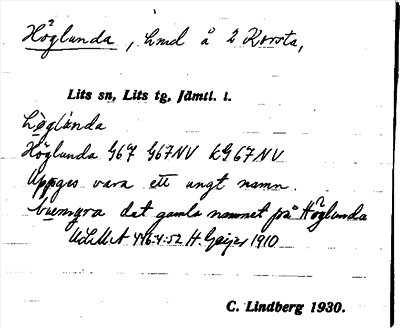 Höglunda, hmd å 2 Korsta,
Lits sn, Lits tg, Jämtl. l.
Höglunda G67 G67NV kG67NV
Uppges vara ett ungt namn.
det gamla namnet på Höglunda
ULMA 446:4:52 H. Geijer 1910
C. Lindberg 1930.